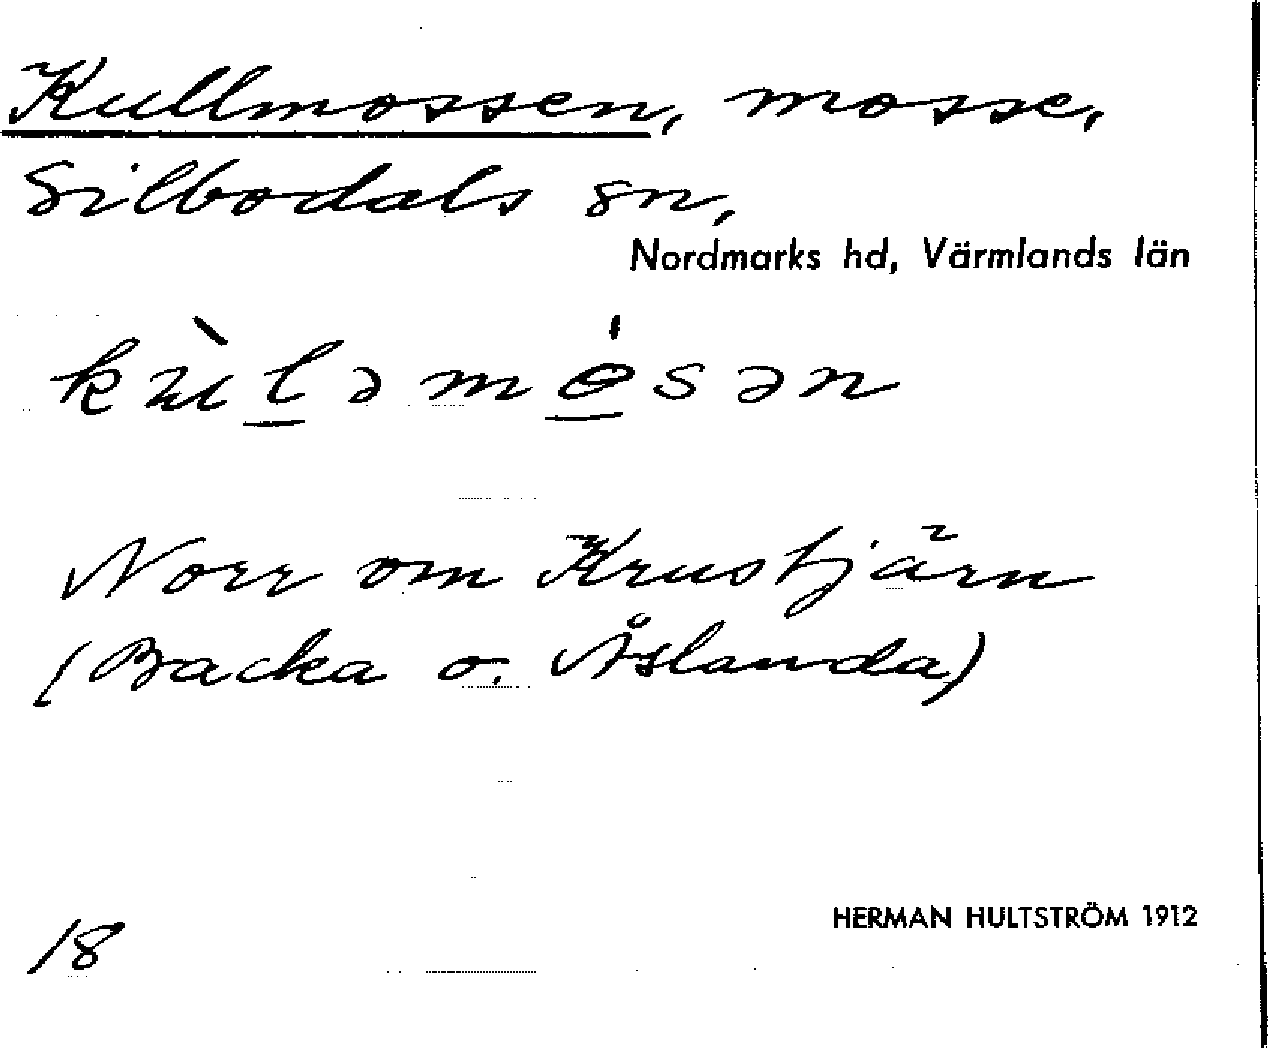 Kullmossen, mosse,
Silbodals sn,
Nordmarks hd, Värmlands län
kùl̲əmɵ̲́sən
Norr om Krustjärn
(Backa o. Åslanda)
18
HERMAN HULTSTRÖM 1912